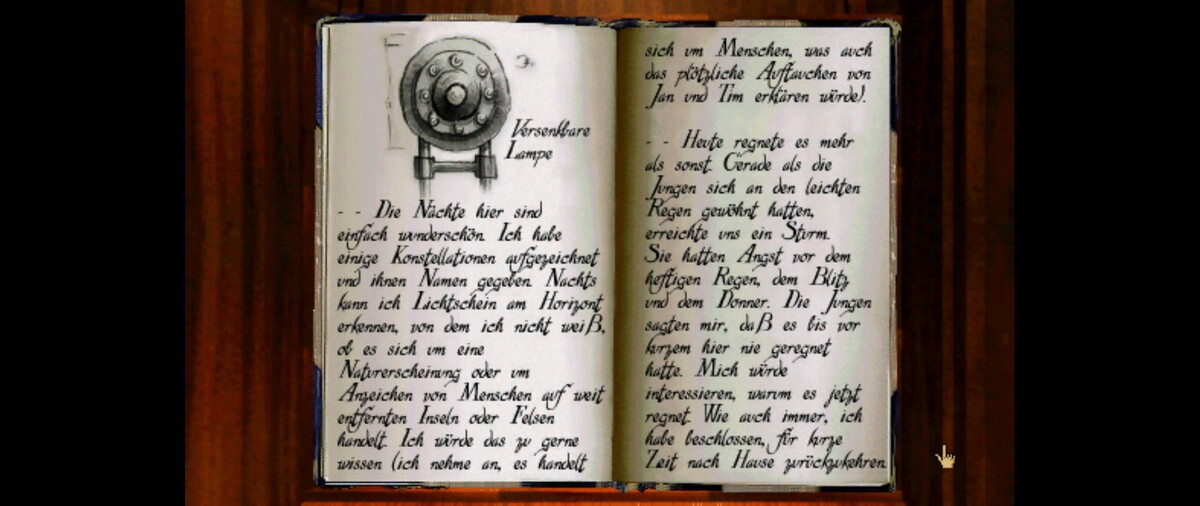 Versenkbare
Lampe
- - Die Nächte hier sind
einfach wunderschön. Ich habe
einige Konstellationen aufgezeichnet
und ihnen Namen gegeben. Nachts
kann ich Lichtschein am Horizont
erkennen, von dem ich nicht weiß,
ob es sich um eine
Naturerscheinung oder um
Anzeichen von Menschen auf weit
entfernten Inseln oder Felsen
handelt. Ich würde das zu gerne
wissen (ich nehme an, es handelt
sich um Menschen, was auch
das plötzliche Auftauchen von
Jan und Tim erklären würde).
- - Heute regnete es mehr
als sonst. Gerade als die
Jungen sich an den leichten
Regen gewöhnt hatten,
erreichte uns ein Sturm.
Sie hatten Angst vor dem
heftigen Regen, dem Blitz
und dem Donner. Die Jungen
sagten mir, daß es bis vor
kurzem hier nie geregnet
hatte. Mich würde
interessieren, warum es jetzt
regnet. Wie auch immer, ich
habe beschlossen, für kurze
Zeit nach Hause zurückzukehren.